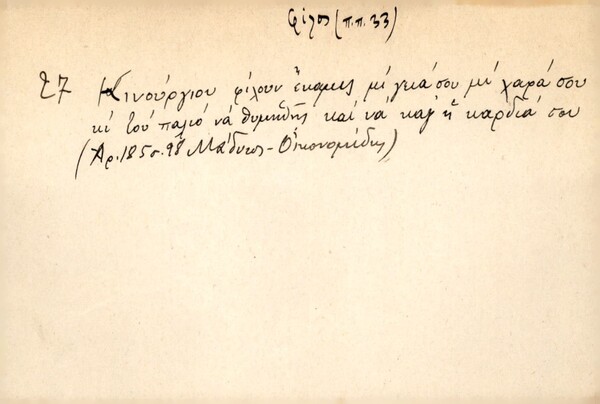 φίλος (π.π. 33)
27 Κινούργιου φίλουν ἔκαμες μὲ γειά σου μὲ χαρά σου
κὶ τοὺ παλιό νὰ θυμηθῆς καὶ νὰ καῇ ἡ καρδιά σου
(Ἀρ. 185 σ. 98 Μάδυτος - Οἰκονομίδης)